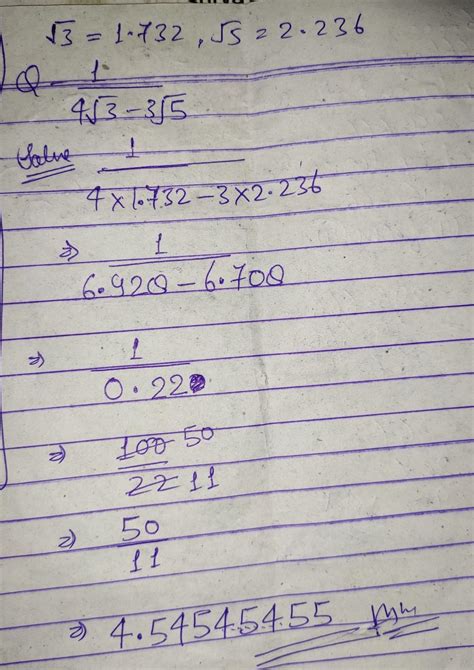 √3 = 1.732, √5 = 2.236
Q - 1
4√3 - 3√5
Solve 1
4×1.732 - 3×2.236
⇒ 1
6.928 - 6.708
⇒ 1
0.220
⇒ 100 50
22 11
⇒ 50
11
⇒ 4.54545455